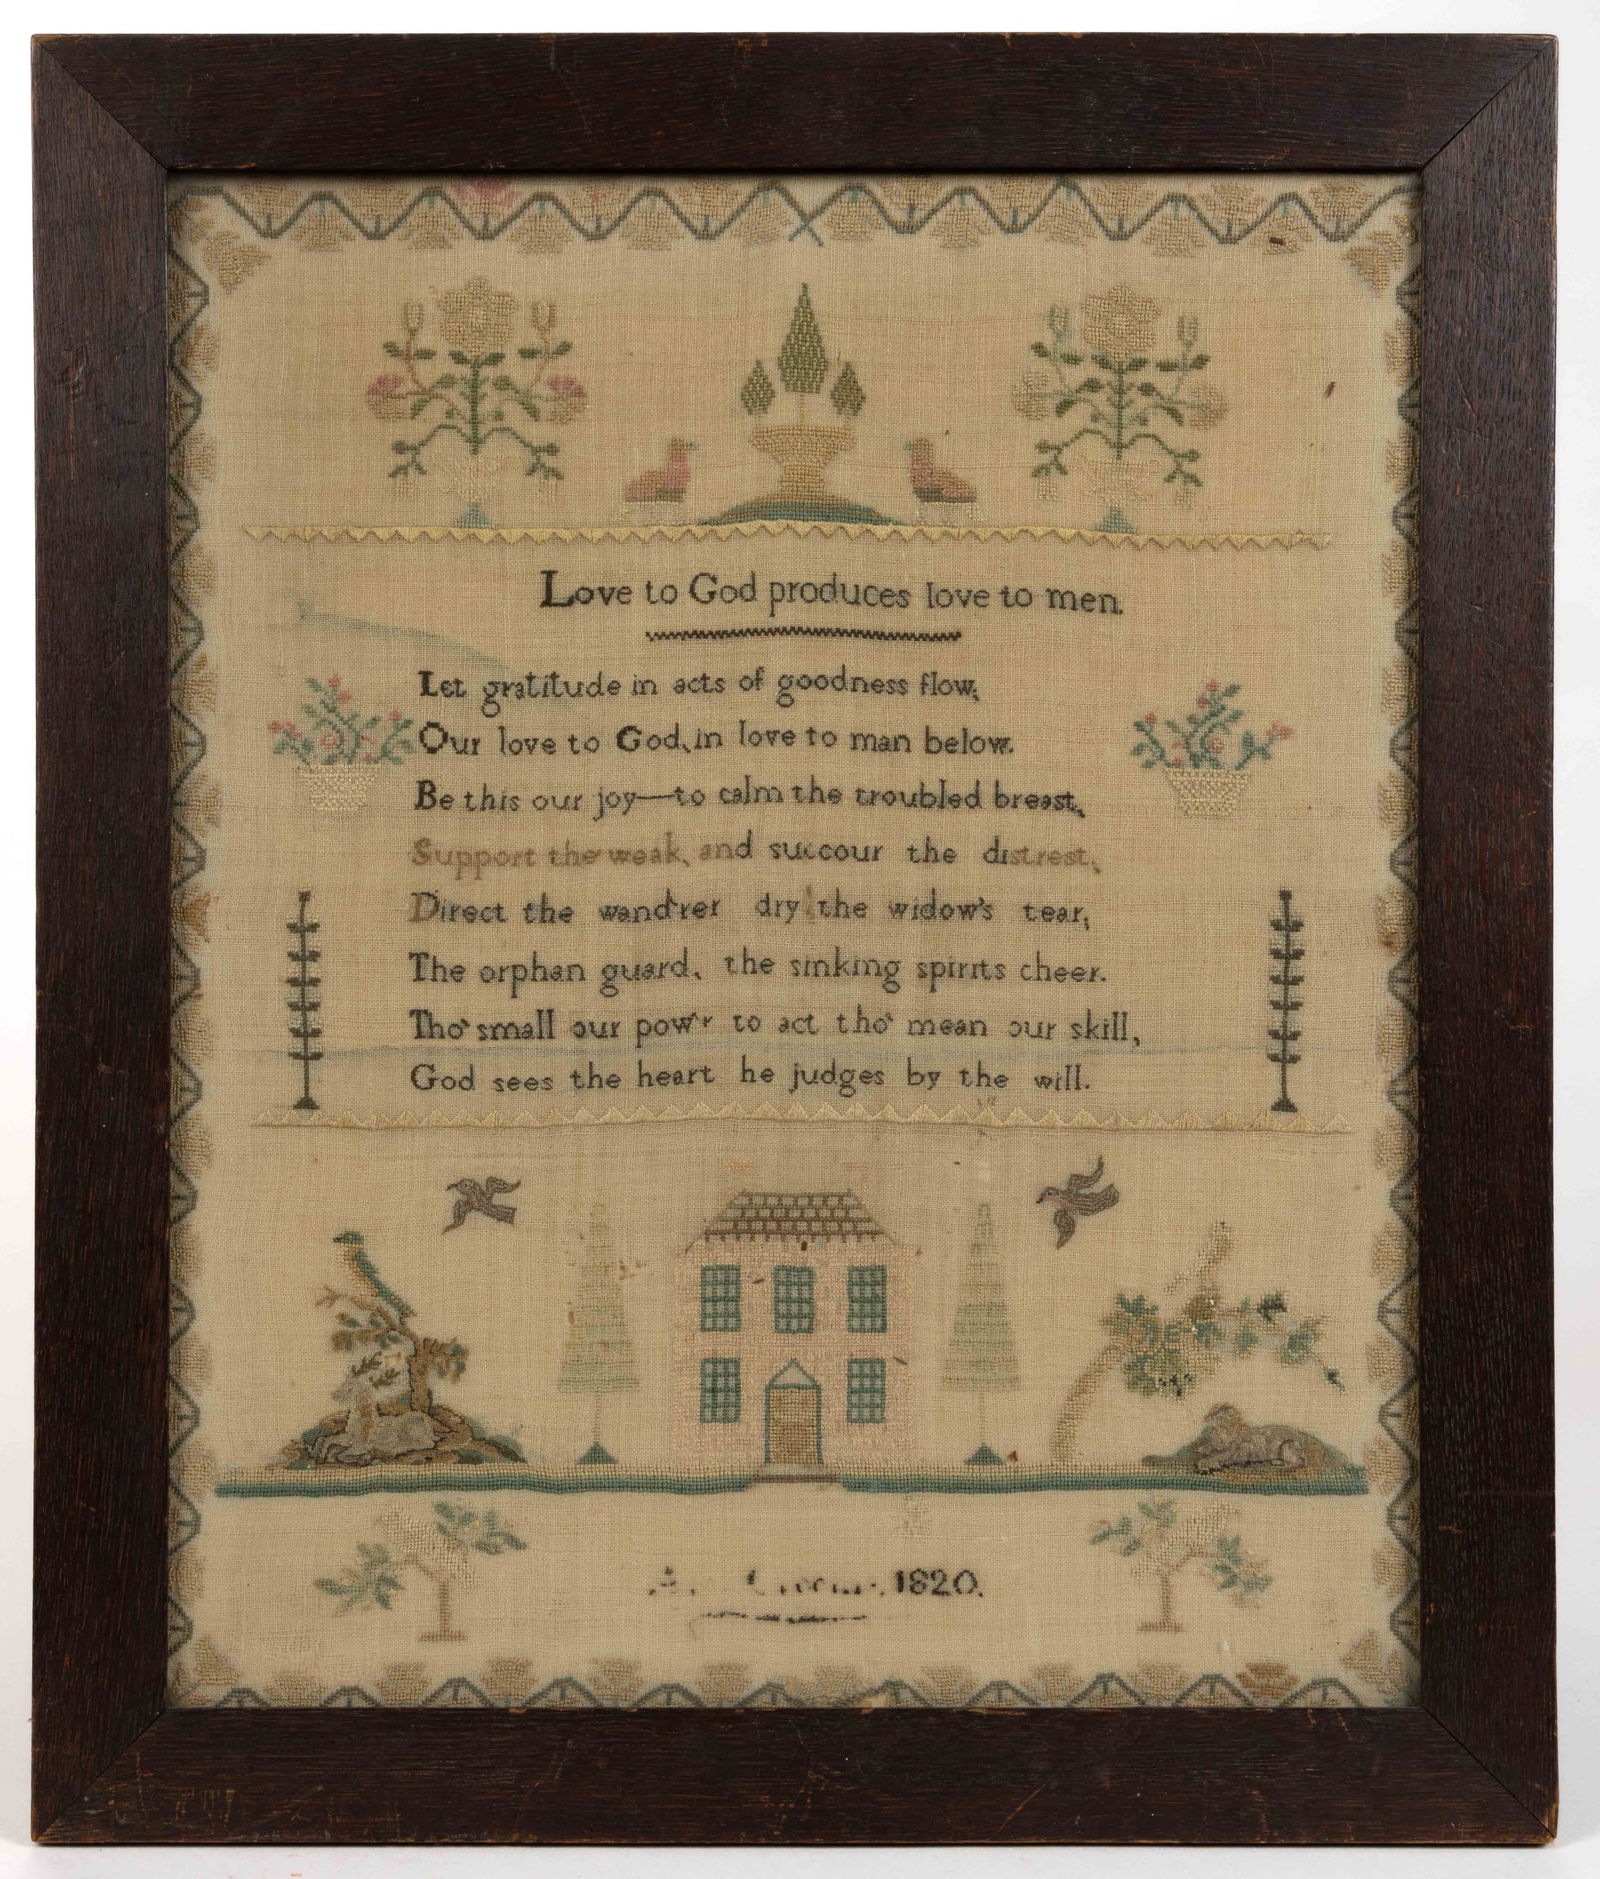 Love to God produces love to men.
Let gratitude in acts of goodness flow,
Our love to God, in love to man below.
Be this our joy—to calm the troubled breast,
Support the weak, and succour the distrest,
Direct the wand'rer dry the widow's tear,
The orphan guard, the sinking spirits cheer.
Tho' small our pow'r to act tho' mean our skill,
God sees the heart he judges by the will.
1820.